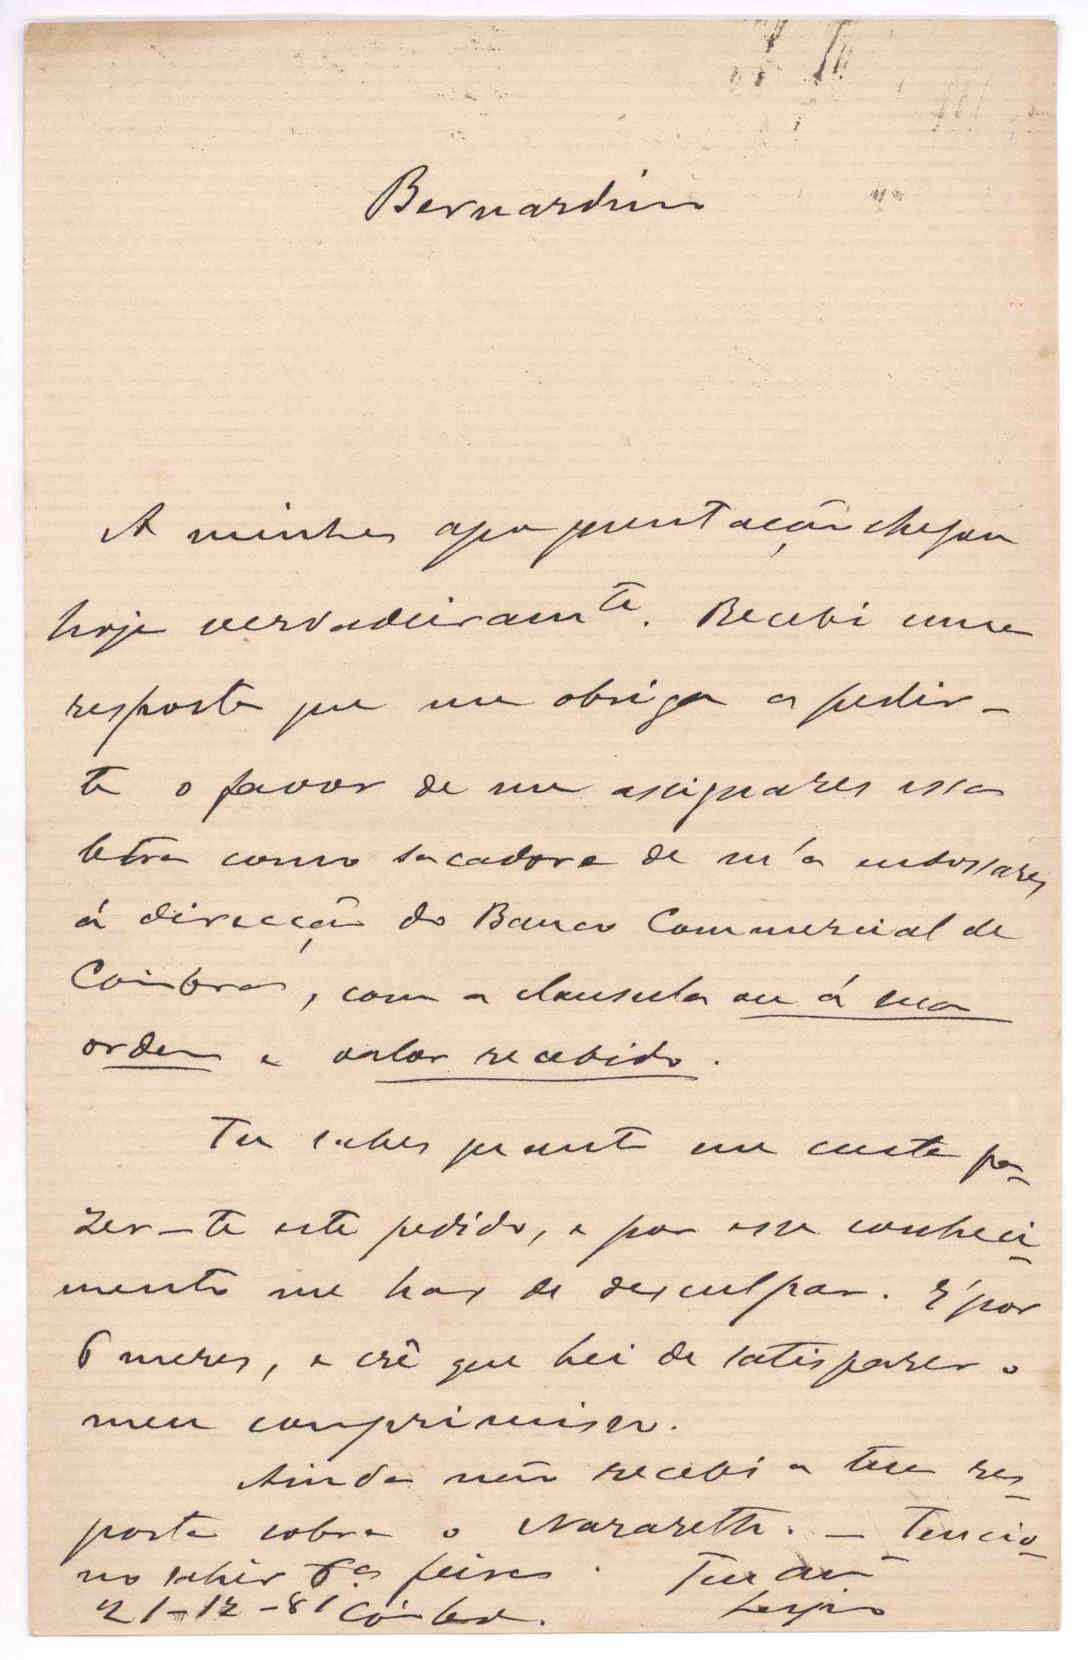 Bernardino
A minha apoquentação chegou
hoje verdadeiramte. Recebi uma
resposta que me obriga a pedir-
te o favor de me assignares essa
letra como sacador e de m'a endossares
á direcção do Banco Commercial de
Coimbra, com a clausula ou á sua
ordem e valor recebido.
Tu sabes quanto me custa fa-
zer-te este pedido, e por esse conheci-
mento me has de desculpar. É por
6 mezes, e crê que hei de satisfazer o
meu comprimisso.
Ainda não recebi a tua res-
posta sobre o Nazareth. — Tencio-
no sahir 6ª feira. Teu
21-12-81